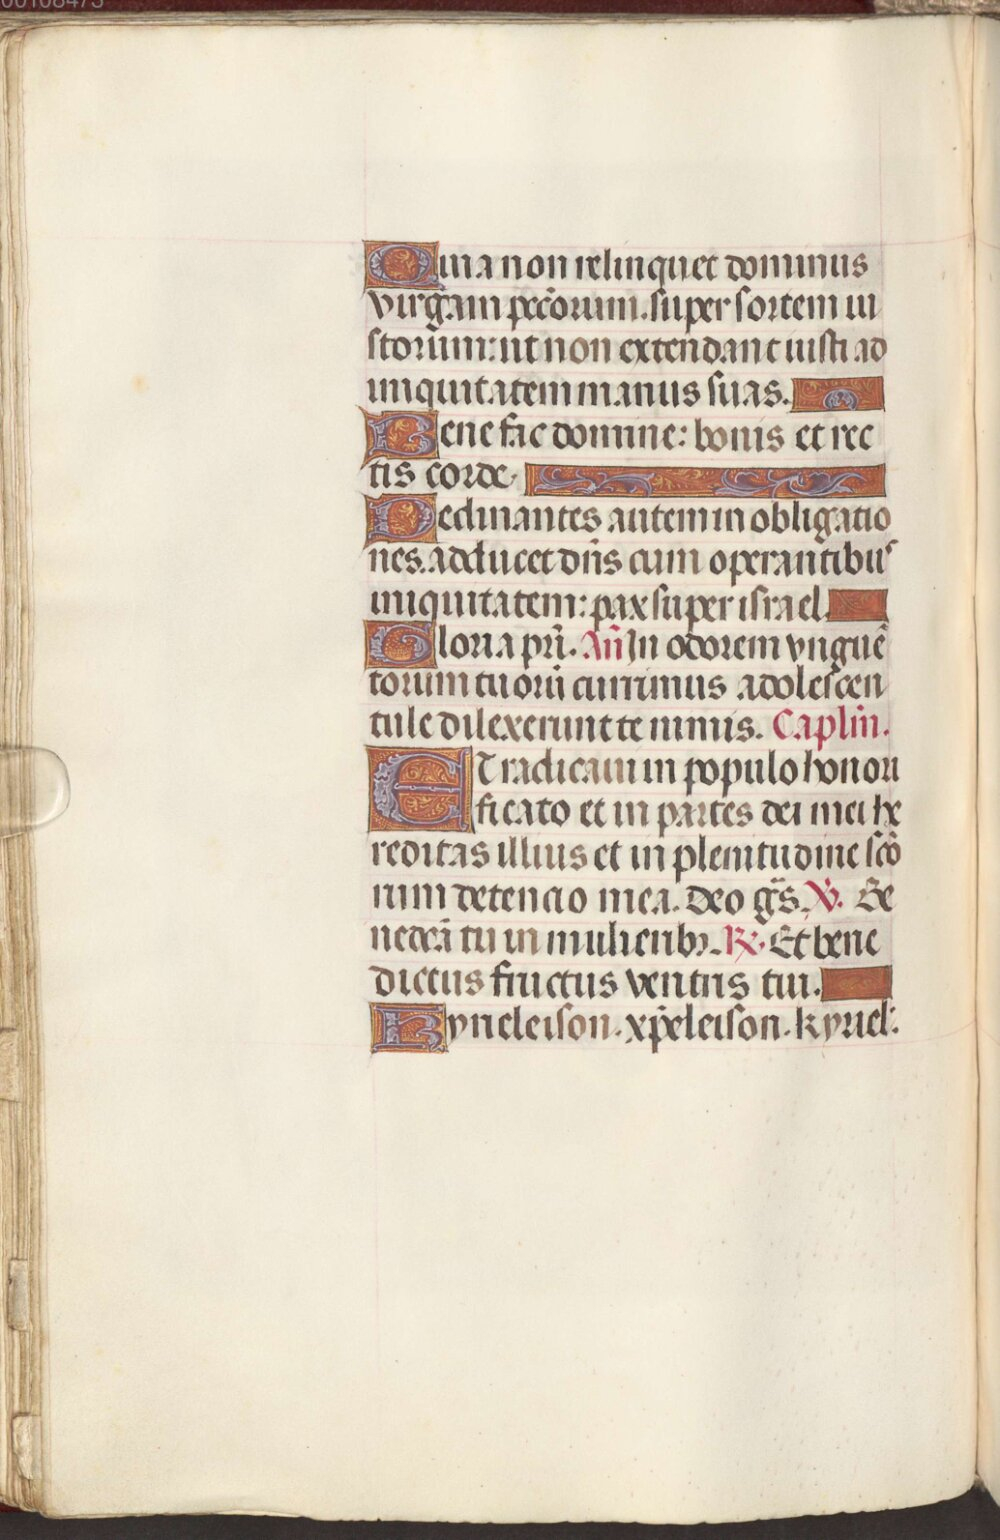 Quia non relinquet dominus
virgam peccorum. super sortem iu
storum: ut non extendant iusti ad
iniquitatem manus suas.
Bene fac domine: bonis et rec
tis corde.
Declinantes autem in obligatio
nes. adducet dñs cum operantibus
iniquitatem: pax super israel.
Gloria pri. Añ In odorem vnguẽ
torum tuorũ currimus adolescen
tule dilexerunt te nimis. Caplm.
Et radicaui in populo honori
ficato et in partes dei mei he
reditas illius et in plenitudine scõ
rum detencio mea. Deo gs. ℣. Be
nedcã tu in mulieribꝫ. ℟. Et bene
dictus fructus ventris tui.
Kyrieleison. xp̃eleison. kyriel.